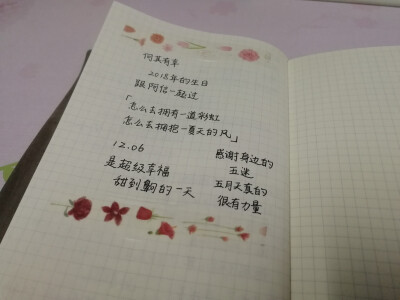 何其有幸
2018年的生日
跟阿信一起过
「怎么去拥有一道彩虹
怎么去拥抱一夏天的风」
12.06
是超级幸福
甜到齁的一天
感谢身边的
五迷
五月天真的
很有力量